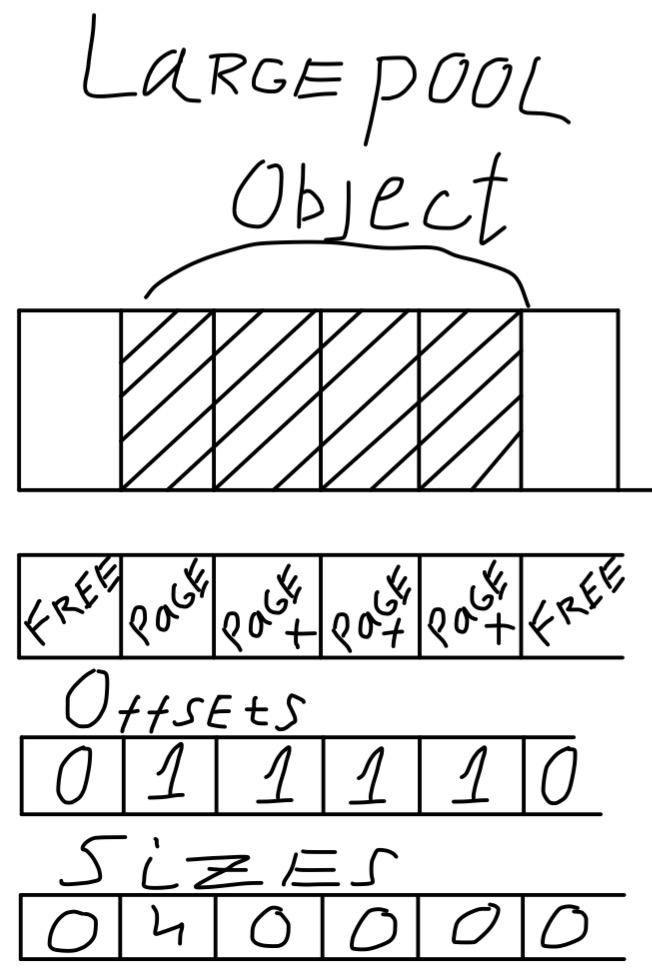 LARGE POOL
Object
FREE PAGE PAGE + PAGE + PAGE + FREE
Offsets
0 1 1 1 1 0
SIZES
0 4 0 0 0 0